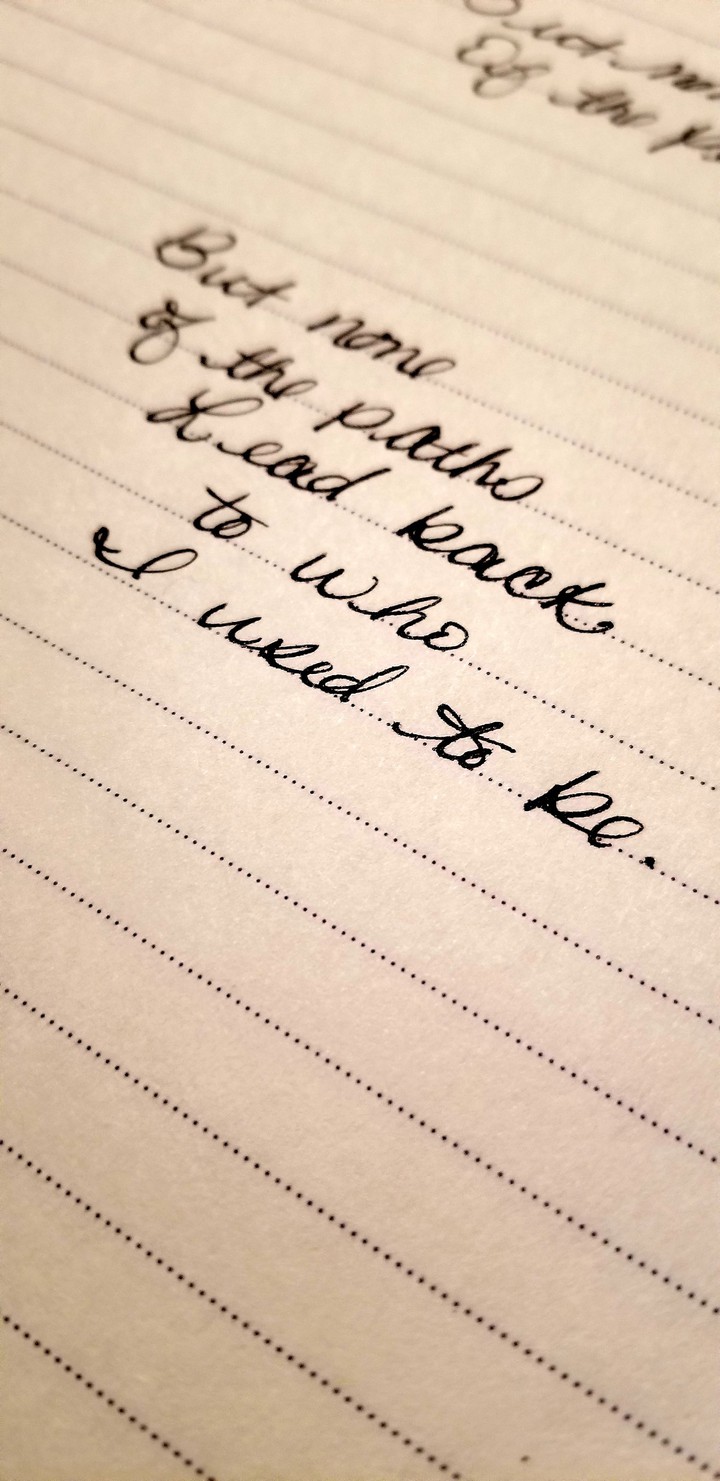 But none
Of the
But none
of the paths
Lead back
to who
I used to be.